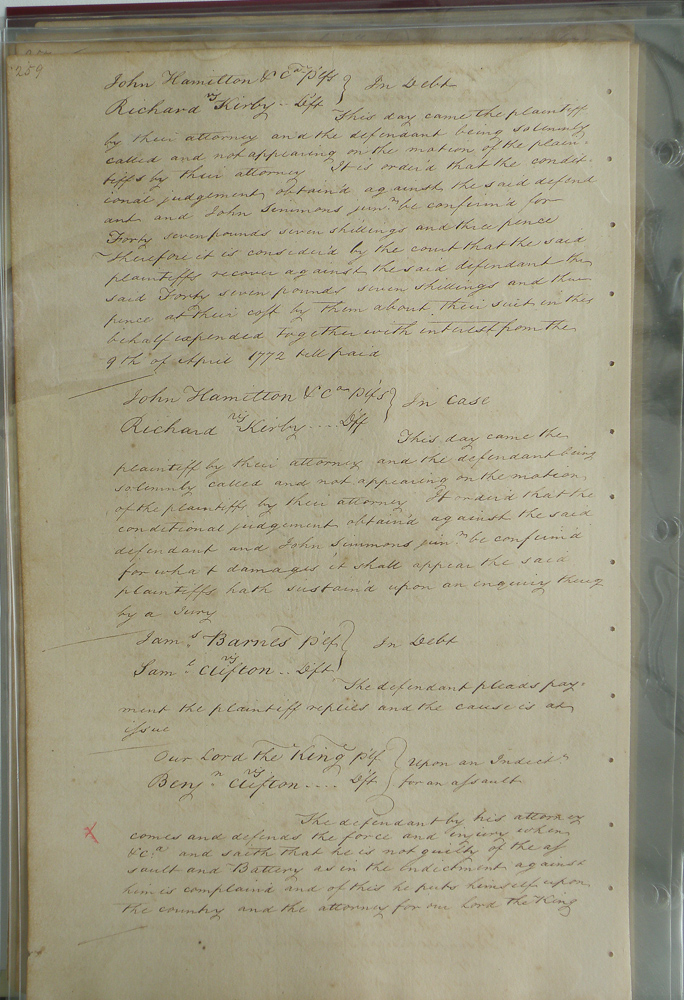 259
John Hamilton & Ca. Plfs } In Debt
vs
Richard Kirby .. Dft
This day came the plaintiff
by their attorney and the defendant being solemnly
called and not appearing on the motion of the plain-
tiffs by their attorney It is order'd that the condit
ional judgement obtain'd against the said defend
ant and John Simmons junr. be confirm'd for
Forty seven pounds seven shillings and three pence
Therefore it is consider'd by the court that the said
plaintiffs recover against the said defendant the
said Forty seven pounds seven shillings and three
pence at their cost by them about their suit in this
behalf expended together with interest from the
9th of April 1772 till paid
John Hamilton & Ca Plfs } In Case
vs
Richard Kirby .... Dft
This day came the
plaintiff by their attorney and the defendant being
solemnly called and not appearing on the motion
of the plaintiffs by their attorney It order'd that the
conditional judgement obtain'd against the said
defendant and John Simmons junr. be confirm'd
for what damages it shall appear the said
plaintiffs hath sustain'd upon an enquiry thereof
by a Jury
Jams. Barnes Plf } In Debt
vs
Saml. Clifton .. Dft
The defendant pleads pay-
ment the plaintiff replies and the cause is at
issue
Our Lord the King Plf } Upon an Indictt.
vs
Benjn. Clifton .... Dft for an assault
The defendant by his attorney
comes and defends the force and injury when
&Ca. and saith that he is not guilty of the as
sault and Battery as in the indictment against
him is complain'd and of this he puts himself upon
the country and the attorney for our Lord the King